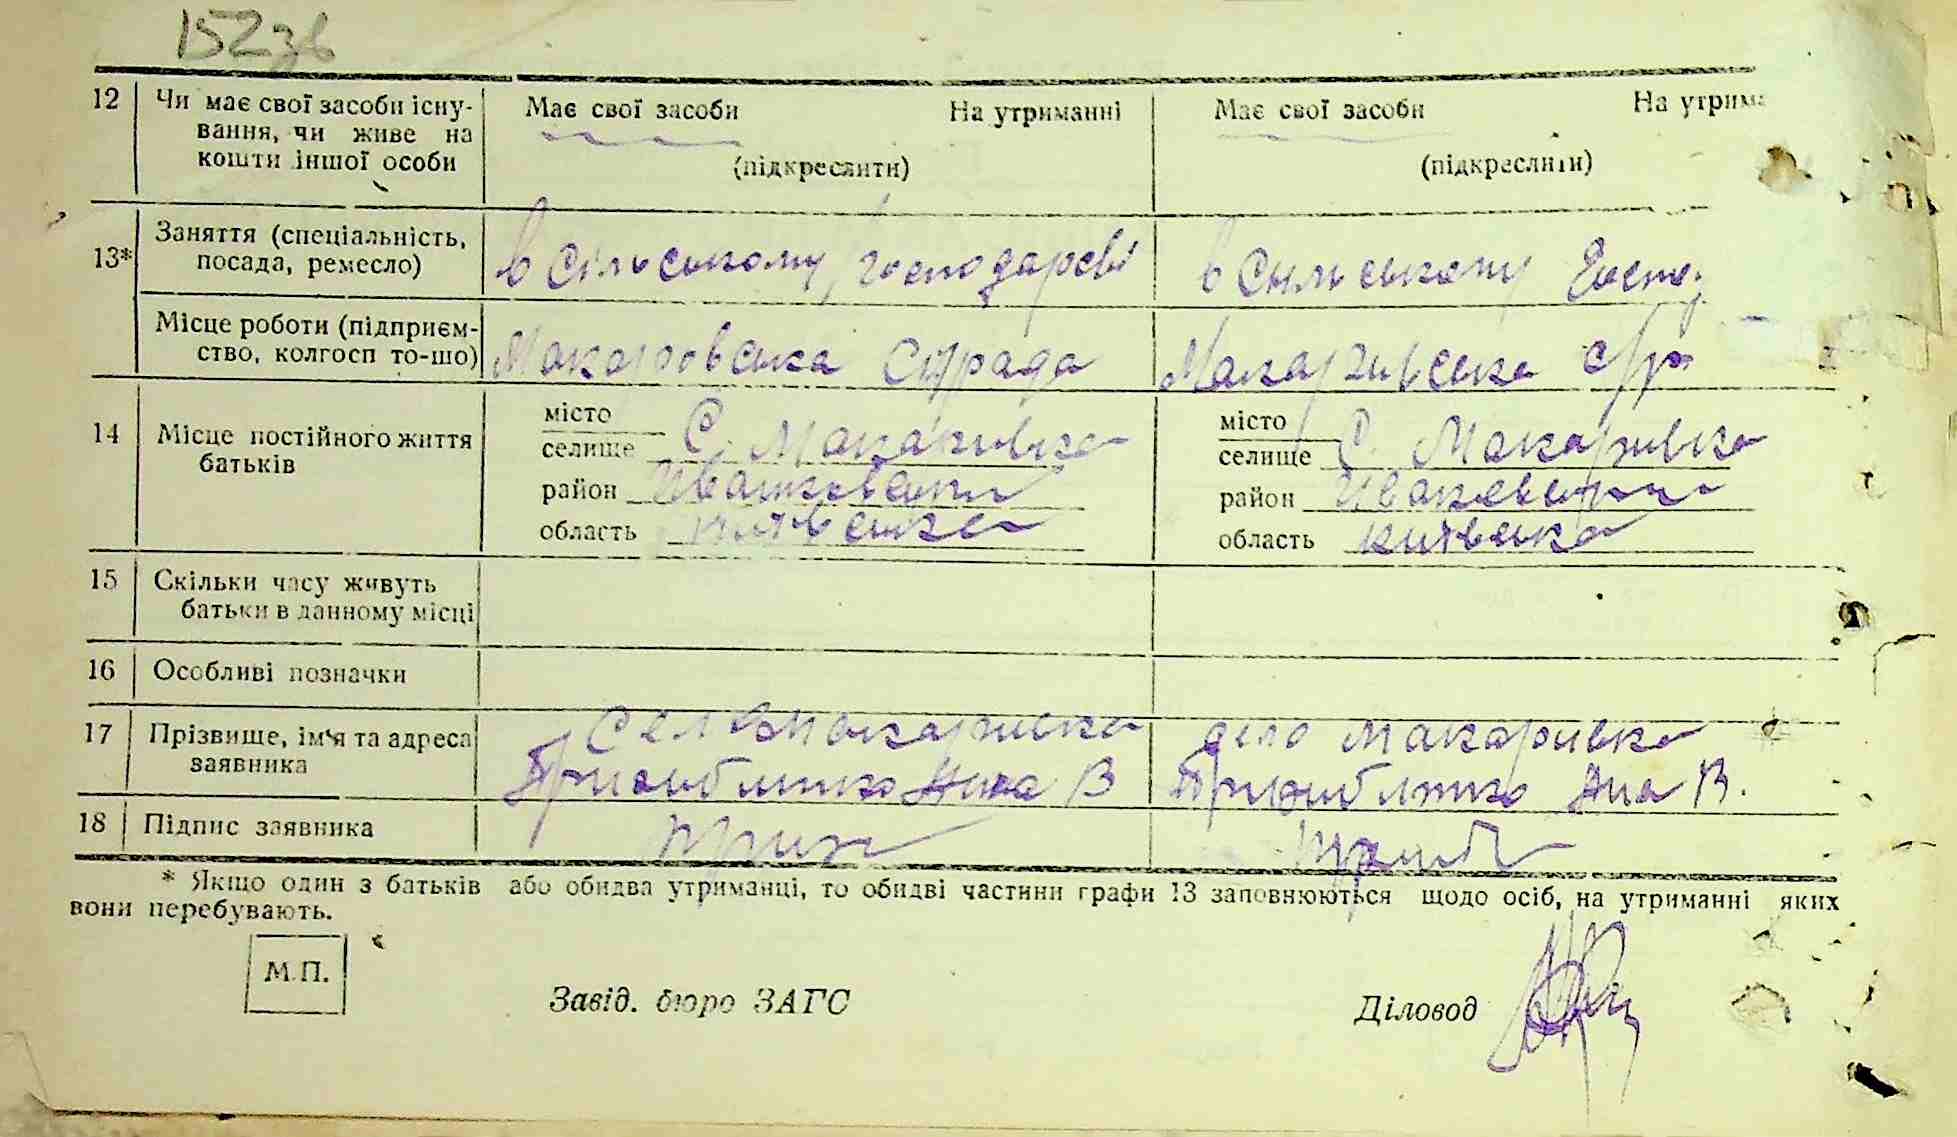 152зв
12 Чи має свої засоби існу-
вання, чи живе на
кошти іншої особи
Має свої засоби На утриманні
(підкреслити)
Має свої засоби На утрима
(підкреслити)
13* Заняття (спеціальність,
посада, ремесло)
в сільському господарсві
в сильському Госпо
Місце роботи (підприєм-
ство, колгосп то-що)
Макаровська
Макаривська
14 Місце постійного життя
батьків
місто
селище С. Макаривка
район
область київська
місто
селище С. Макаривка
район
область київска
15 Скільки часу живуть
батьки в данному місці
16 Особливі позначки
17 Прізвище, ім'я та адреса
заявника
Село Макаривка
В
село Макаривка
В.
18 Підпис заявника
* Якщо один з батьків або обидва утриманці, то обидві частини графи 13 заповнюються щодо осіб, на утриманні яких
вони перебувають.
М.П.
Завід. бюро ЗАГС
Діловод